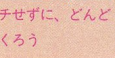 チせずに、どんど
くろう